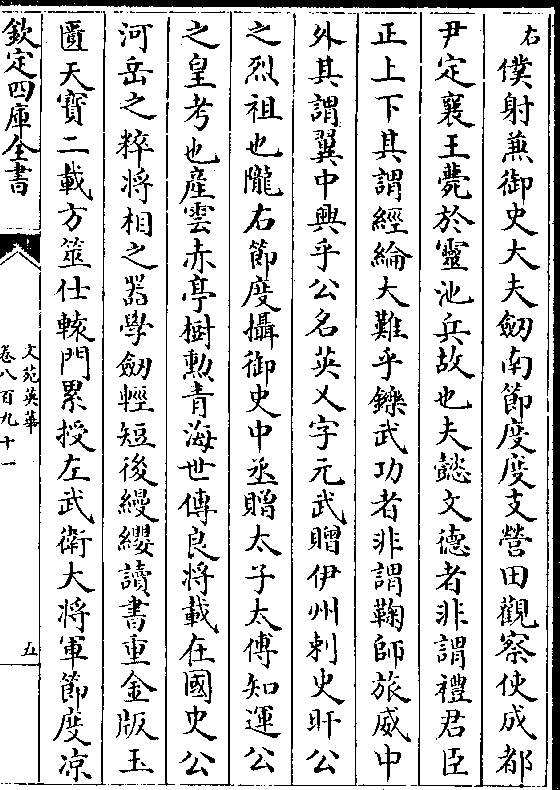 右僕射兼御史大夫劒南節度度支營田觀察使成都
尹定襄王薨於靈池兵故也夫懿文德者非謂禮君臣
正上下其謂經綸大難乎鑠武功者非謂鞠師旅威中
外其謂翼中興乎公名英乂字元武贈伊州刺史旰公
之烈祖也隴右節度攝御史中丞贈太子太傅知運公
之皇考也產雲赤亭樹勲青海世傳良將載在國史公
河岳之粹將相之器學劒輕短後縵纓讀書重金版玉
匱天寳二載方筮仕轅門累授左武衛大將軍節度凉
欽定四庫全書
文苑英華
卷八百九十一
五